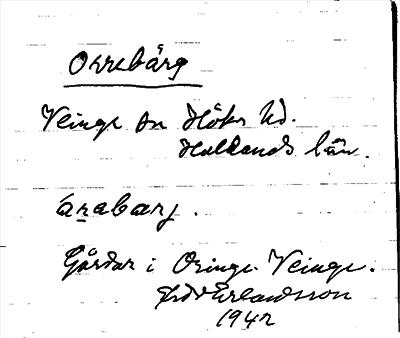 Orrebärg
Veinge sn Höks hd.
Hallands län.
årabarj.
Gårdar i Oringe Veinge.
Erlandsson
1942